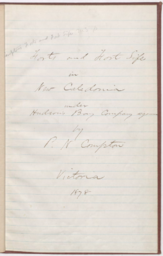 Forts and Fort Life
in
New Caledonia
under
Hudson's Bay Company
by
P. N. Compton
Victoria
1878